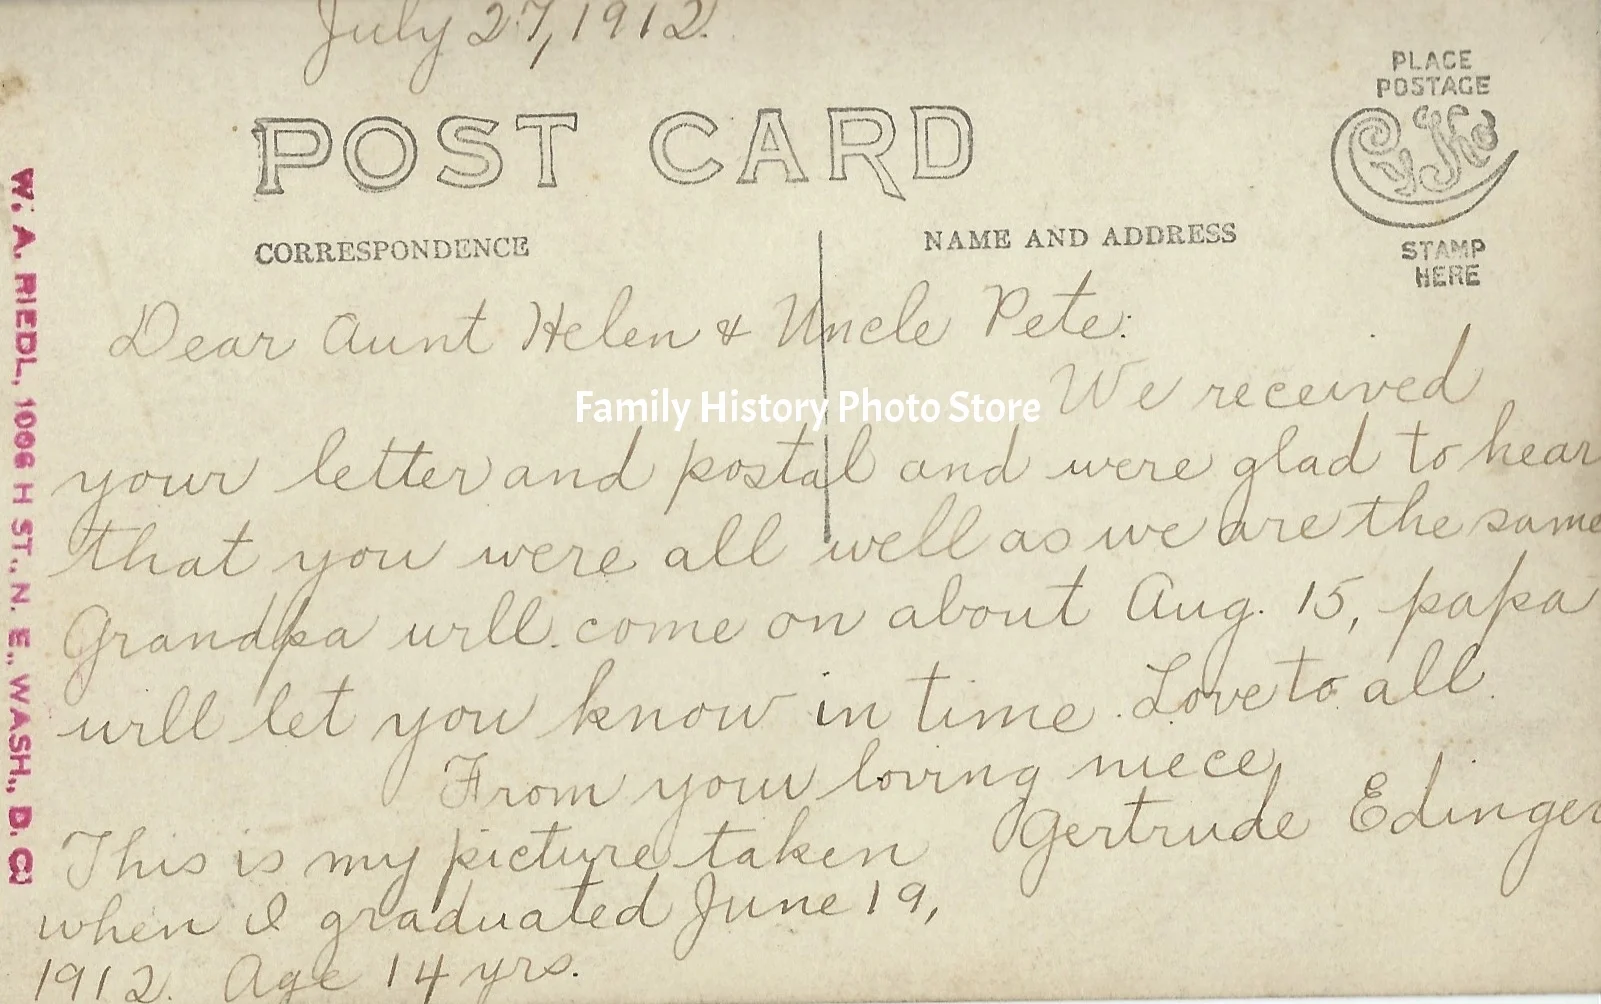 July 27, 1912.
POST CARD
PLACE
POSTAGE
Cyko
STAMP
HERE
CORRESPONDENCE
NAME AND ADDRESS
W. A. RIEDL, 1006 H ST., N. E., WASH., D. C.
Dear Aunt Helen & Uncle Pete:
We received
Family History Photo Store
your letter and postal and were glad to hear
that you were all well as we are the same
Grandpa will come on about Aug. 15, papa
will let you know in time. Love to all.
From your loving niece,
Gertrude Edinger
This is my picture taken
when I graduated June 19,
1912. Age 14 yrs.